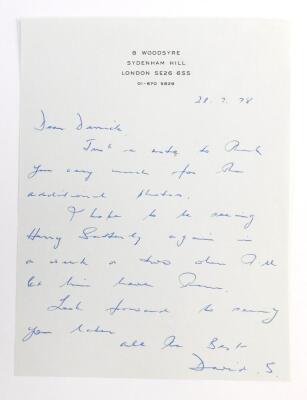 8 WOODSYRE
SYDENHAM HILL
LONDON SE26 6SS
01-670 5829
28. 7. 78
Dear Derrick.
Just a note to thank
you very much for the
additional photos.
I hope to be seeing
Harry again in
a week or two when I'll
let him have them.
Look forward to seeing
you later
All the Best
David. S.